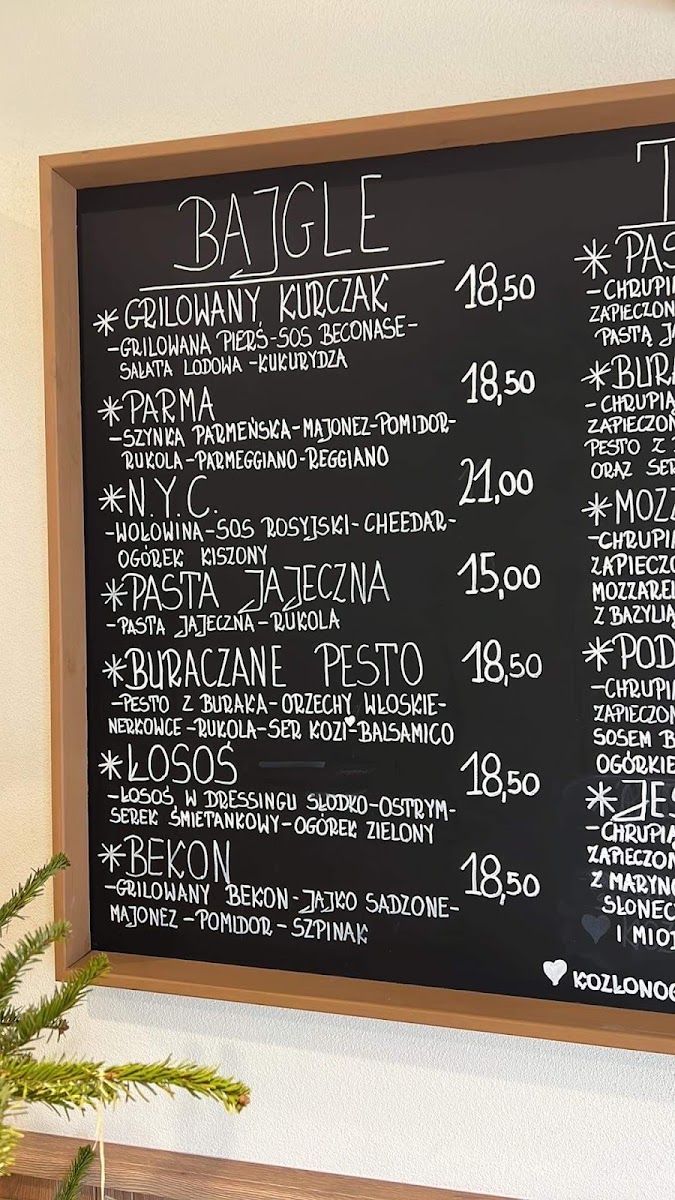 BAJGLE
* GRILOWANY KURCZAK 18,50
-GRILOWANA PIERŚ-SOS BECONASE-
SAŁATA LODOWA -KUKURYDZA
*PARMA 18,50
-SZYNKA PARMEŃSKA-MAJONEZ-POMIDOR-
RUKOLA-PARMEGGIANO-REGGIANO
*N.Y.C. 21,00
-WOŁOWINA-SOS ROSYJSKI-CHEEDAR-
OGÓREK KISZONY
*PASTA JAJECZNA 15,00
-PASTA JAJECZNA-RUKOLA
*BURACZANE PESTO 18,50
-PESTO Z BURAKA-ORZECHY WŁOSKIE-
NERKOWCE-RUKOLA-SER KOZI-BALSAMICO
*ŁOSOŚ 18,50
-ŁOSOŚ W DRESSINGU SŁODKO-OSTRYM-
SEREK ŚMIETANKOWY-OGÓREK ZIELONY
*BEKON 18,50
-GRILOWANY BEKON-JAJKO SADZONE-
MAJONEZ-POMIDOR-SZPINAK
T
* PAS
-CHRUPI
ZAPIECZON
PASTĄ JA
*BURA
-CHRUPIĄ
ZAPIECZON
PESTO Z
ORAZ SER
*MOZZ
-CHRUPI
ZAPIECZO
MOZZAREL
Z BAZYLIĄ
*POD
-CHRUPI
ZAPIECZON
SOSEM B
OGÓRKIE
*JES
-CHRUPIĄ
ZAPIECZON
Z MARYNO
SŁONEC
I MIOD
KOZŁONOG